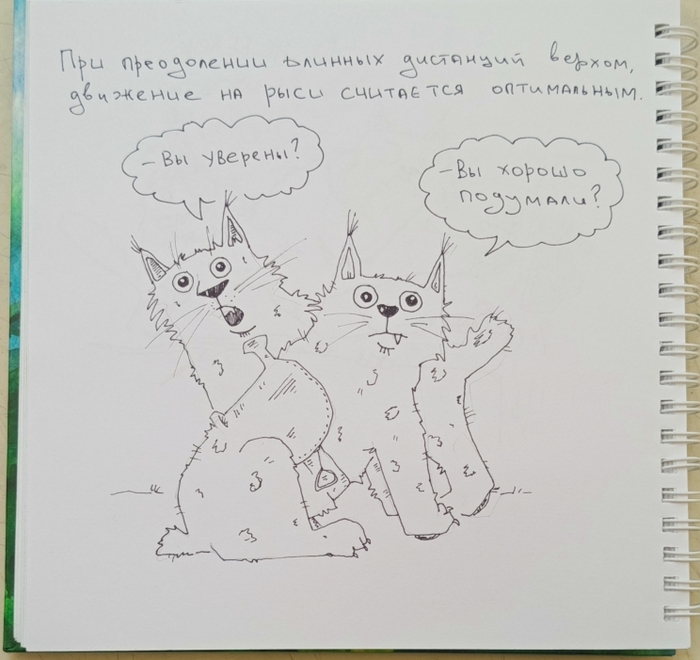 При преодолении длинных дистанций верхом,
движение на рыси считается оптимальным.
- Вы уверены?
- Вы хорошо
подумали?